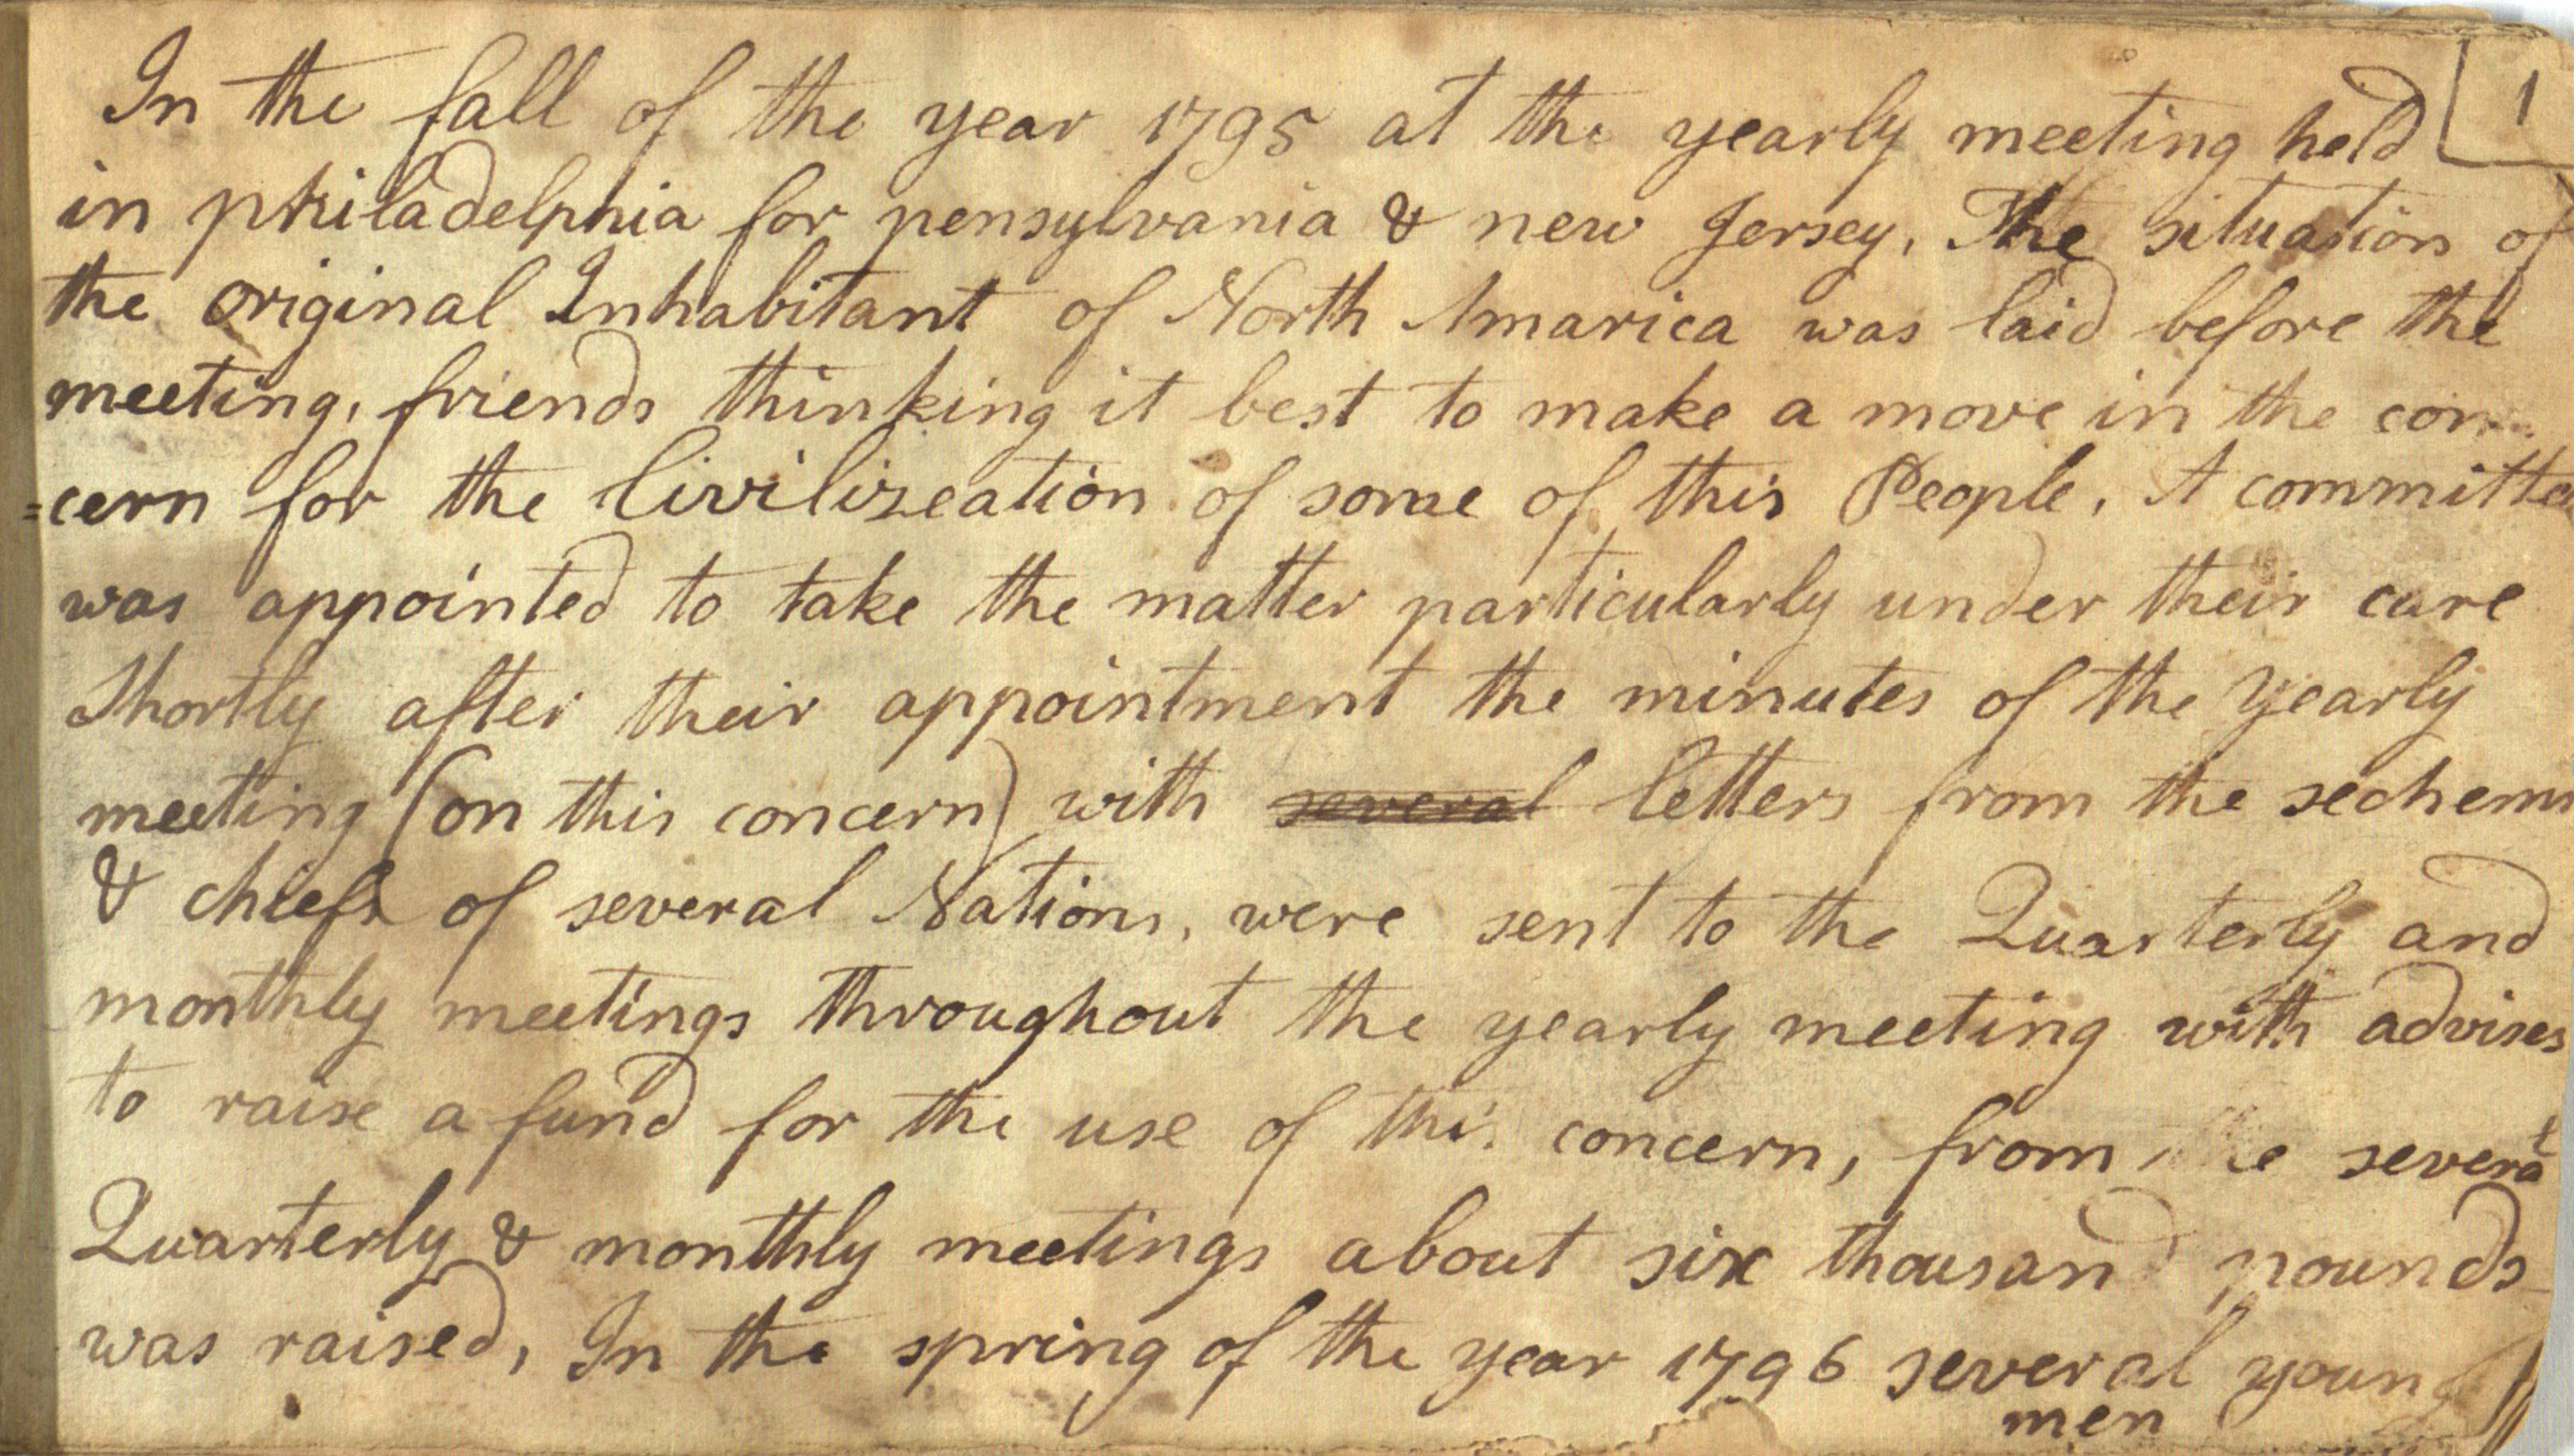 1
In the fall of the year 1795 at the yearly meeting held
in philadelphia for pensylvania & new Jersey, The situation of
the original Inhabitant of North Amarica was laid before the
meeting, friends thinking it best to make a move in the con
=cern for the Civilizeation of some of this People, A committee
was appointed to take the matter particularly under their care
Shortly after their appointment the minutes of the Yearly
meeting (on this concern) with several letters from the sechems
& chiefs of several Nations, were sent to the Quarterly and
monthly meetings throughout the yearly meeting with advises
to raise a fund for the use of this concern, from the several
Quarterly & monthly meetings about six thousand pounds
was raised, In the spring of the year 1796 several young
men